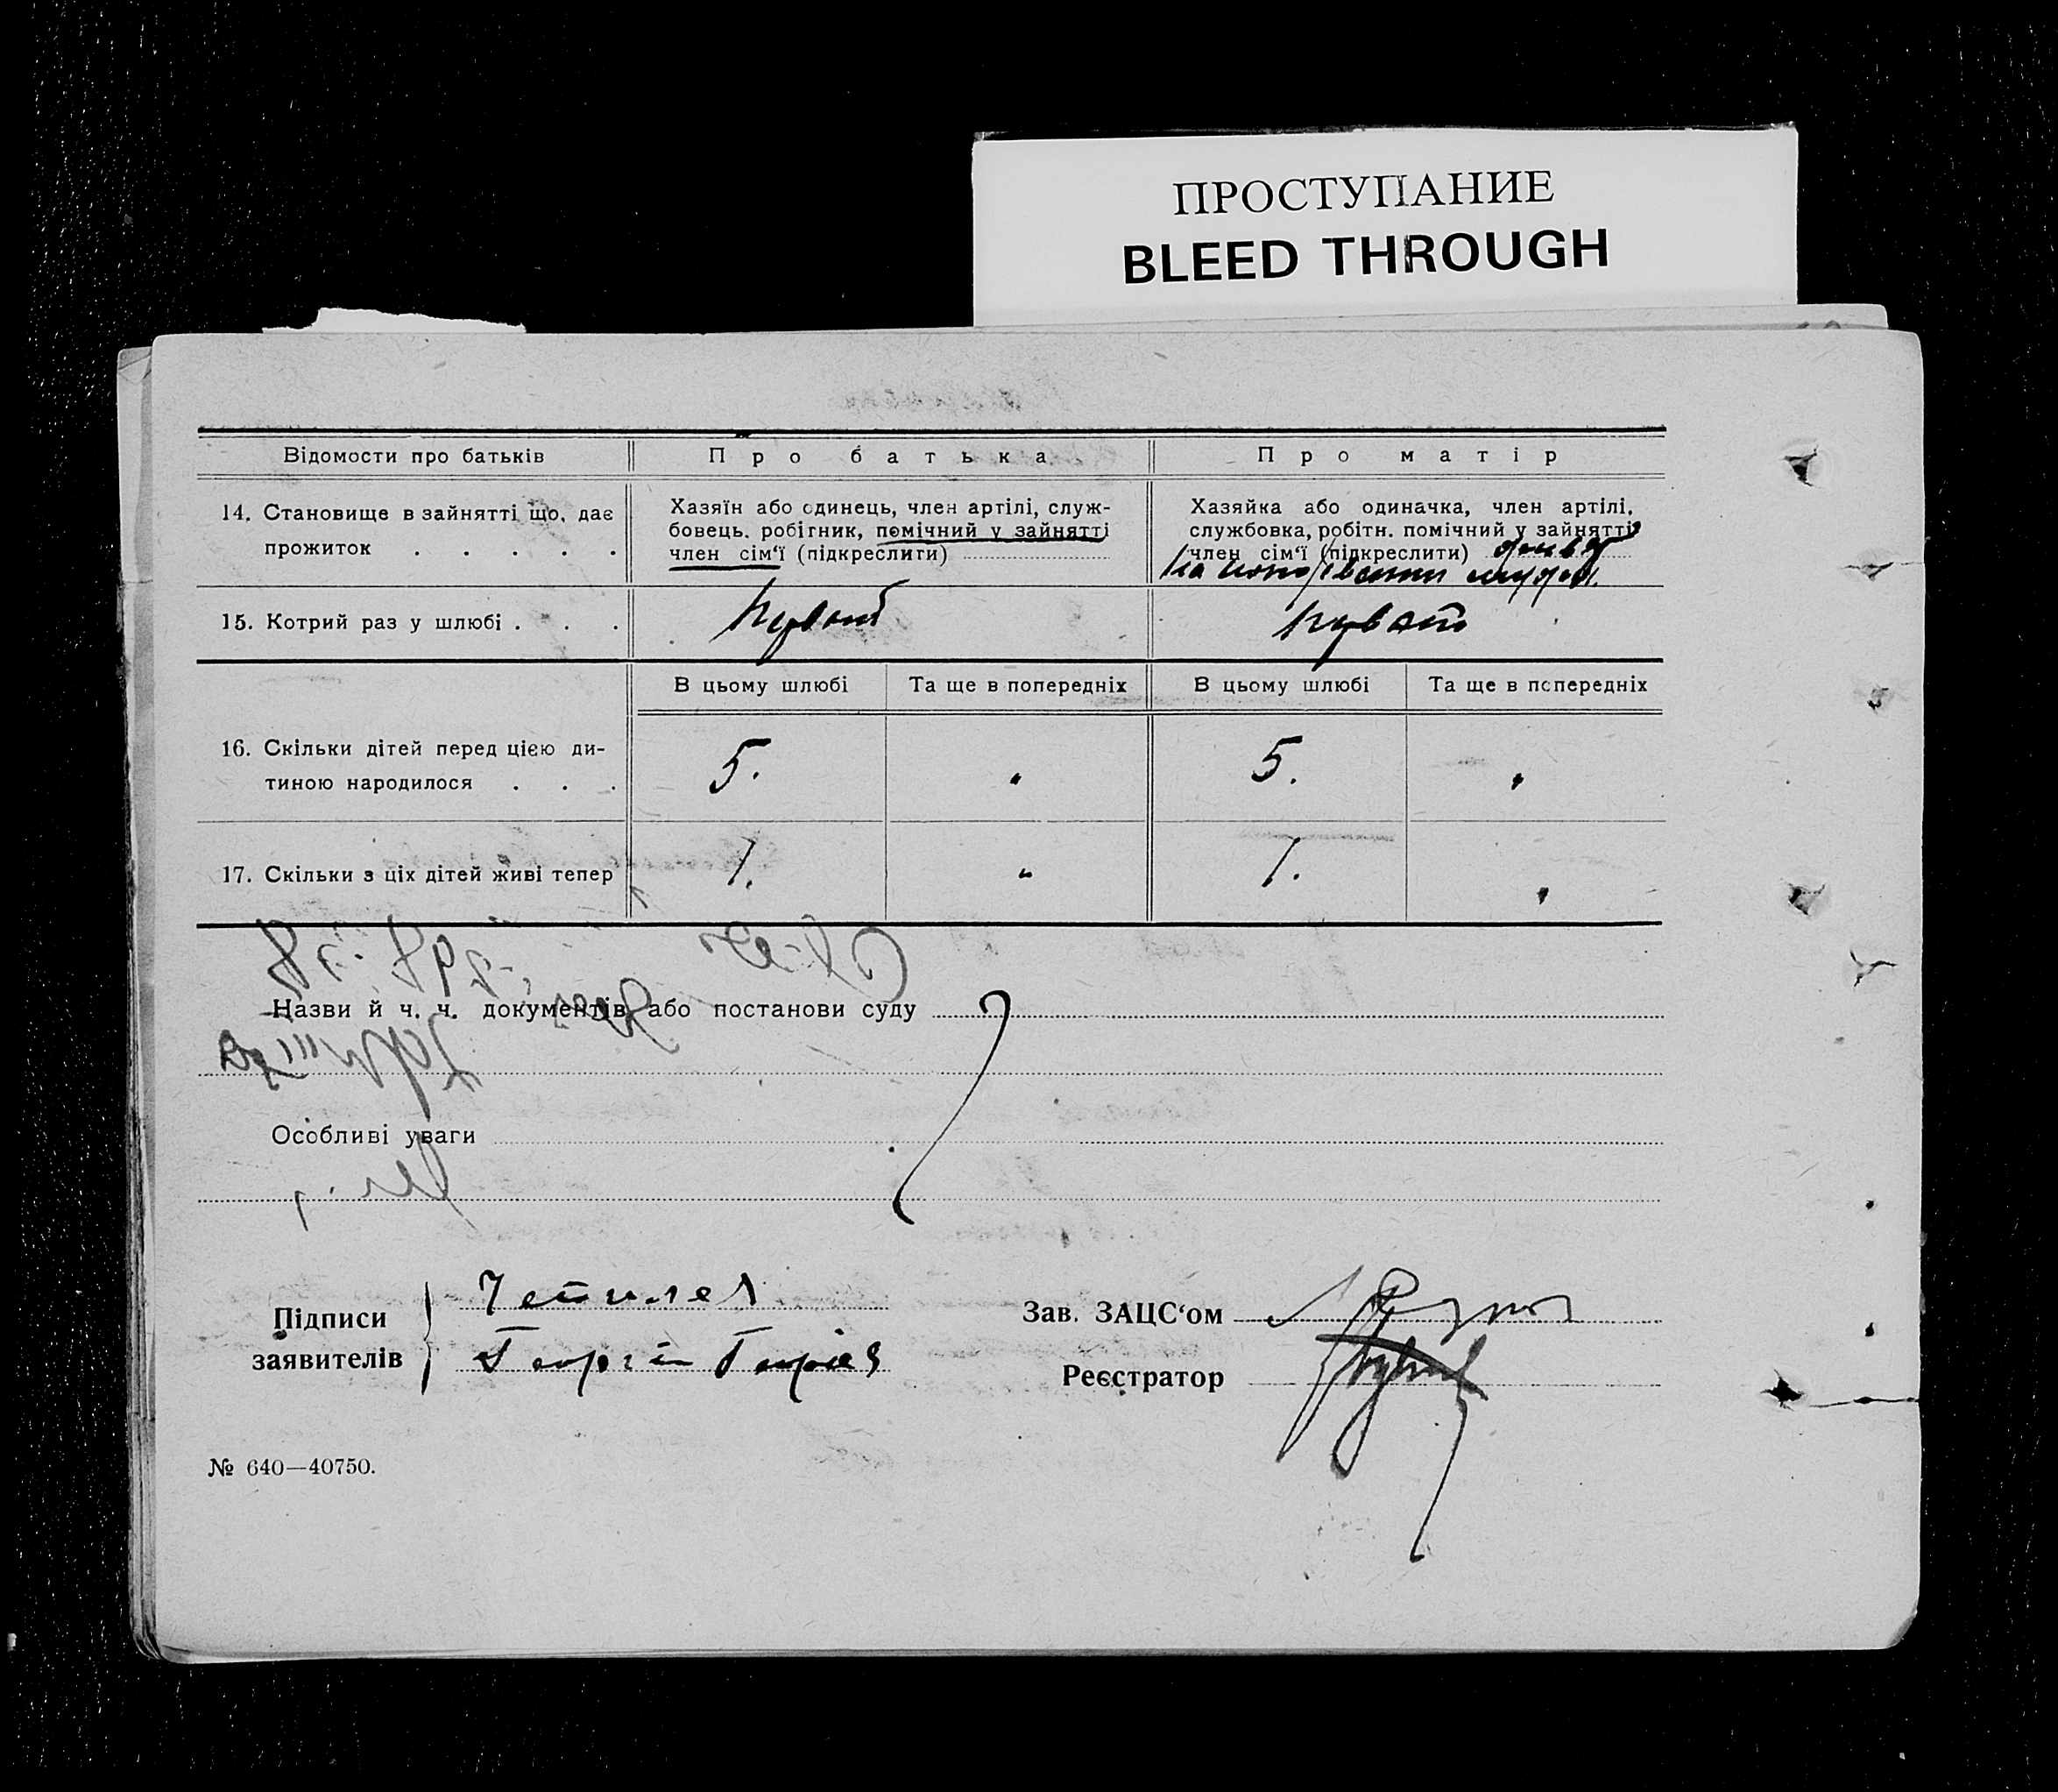 ПРОСТУПАНИЕ
BLEED THROUGH
Відомости про батьків
Про батька
Про матір
14. Становище в зайнятті що, дає
прожиток . . . . .
Хазяїн або одинець, член артілі, служ-
бовець. робітник, помічний у зайнятті
член сім‘ї (підкреслити)
Хазяйка або одиначка, член артілі,
службовка, робітн. помічний у зайнятті
член сім‘ї (підкреслити)
15. Котрий раз у шлюбі . . .
В цьому шлюбі
Та ще в попередніх
В цьому шлюбі
Та ще в попередніх
16. Скільки дітей перед цією ди-
тиною народилося . . .
5.
5.
17. Скільки з ціх дітей живі тепер
1.
1.
Назви й ч. ч. документів або постанови суду
Особливі уваги
Підписи
заявителів
Георгій
Зав. ЗАЦС‘ом
Реєстратор
№ 640—40750.